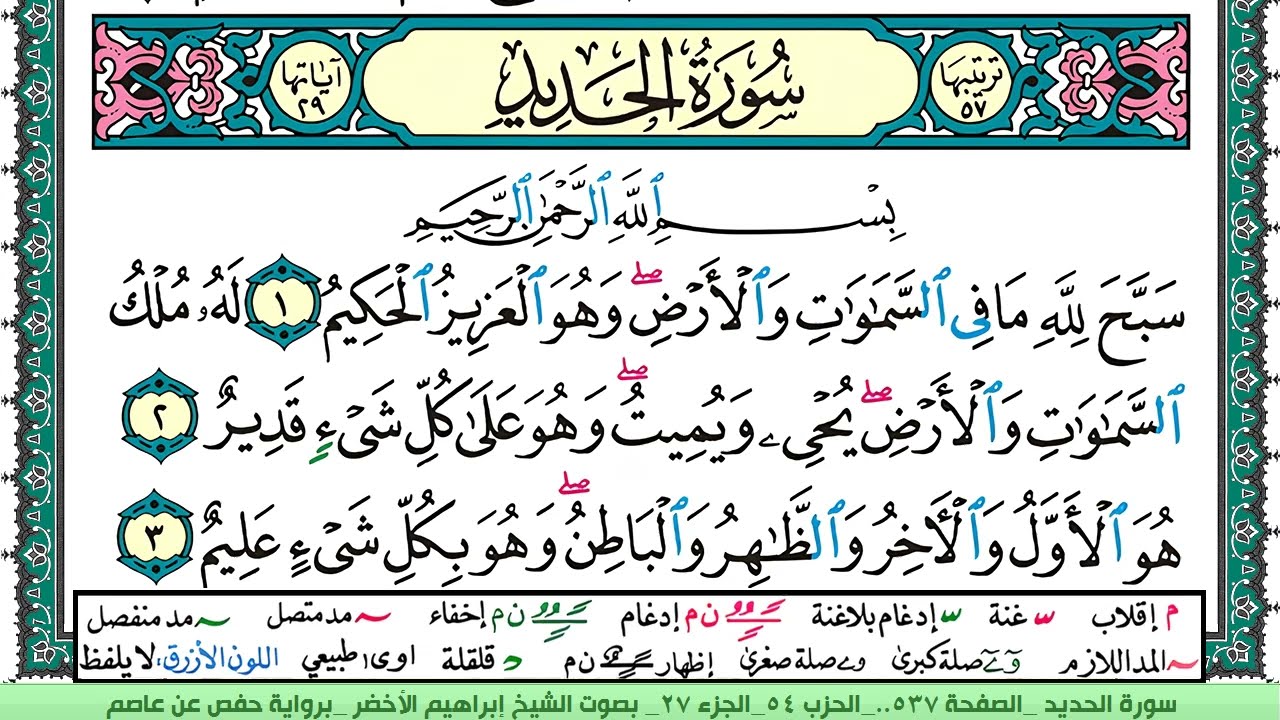 ترتيبها ٥٧
سُورَةُ الحَدِيدِ
آياتها ٢٩
بِسْمِ ٱللَّهِ ٱلرَّحْمَٰنِ ٱلرَّحِيمِ
سَبَّحَ لِلَّهِ مَا فِي ٱلسَّمَٰوَٰتِ وَٱلْأَرْضِۖ وَهُوَ ٱلْعَزِيزُ ٱلْحَكِيمُ ١ لَهُۥ مُلْكُ
ٱلسَّمَٰوَٰتِ وَٱلْأَرْضِۖ يُحْيِۦ وَيُمِيتُۖ وَهُوَ عَلَىٰ كُلِّ شَيْءٍ قَدِيرٌ ٢
هُوَ ٱلْأَوَّلُ وَٱلْآخِرُ وَٱلظَّٰهِرُ وَٱلْبَاطِنُۖ وَهُوَ بِكُلِّ شَيْءٍ عَلِيمٌ ٣
م إقلاب غنة إدغام بلاغنة ن م إدغام ن م إخفاء مد متصل مد منفصل
المد اللازم و ے صلة كبرى و ے صلة صغرى إظهار ن م د قلقلة اوى طبيعي اللون الأزرق: لا يلفظ
سورة الحديد _الصفحة ٥٣٧.._الحزب ٥٤_الجزء ٢٧_ بصوت الشيخ إبراهيم الأخضر _برواية حفص عن عاصم